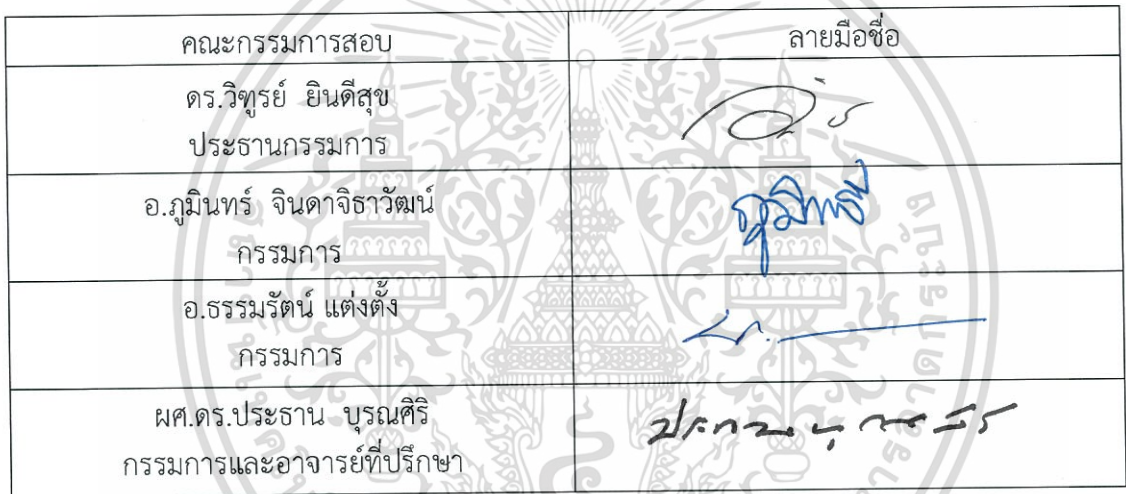 คณะกรรมการสอบ ลายมือชื่อ
ดร.วิฑูรย์ ยินดีสุข
ประธานกรรมการ
อ.ภูมินทร์ จินดาจิธาวัฒน์
กรรมการ
อ.ธรรมรัตน์ แต่งตั้ง
กรรมการ
ผศ.ดร.ประธาน บุรณศิริ
กรรมการและอาจารย์ที่ปรึกษา